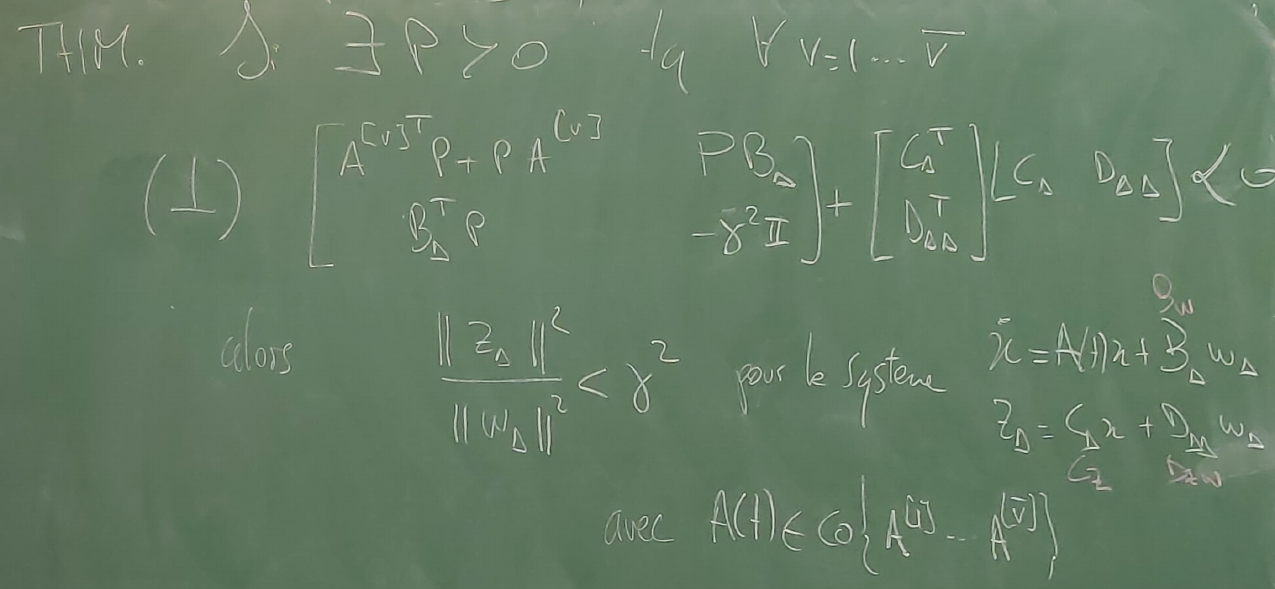 THM. Si ∃ P ≻ 0 tq ∀ v=1...v̄
(1) [ A^{[v]T} P + P A^{[v]}  P B_Δ ; B_Δ^T P  -γ² 𝕀 ] + [ C_Δ^T ; D_ΔΔ^T ] [ C_Δ  D_ΔΔ ] ≺ 0
alors ‖z_Δ‖² / ‖w_Δ‖² < γ² pour le système ẋ = A(t)x + B_Δ w_Δ
B_w
z_Δ = C_Δ x + D_ΔΔ w_Δ
C_z D_zw
avec A(t) ∈ co{A^{[1]} ... A^{[v̄]}}